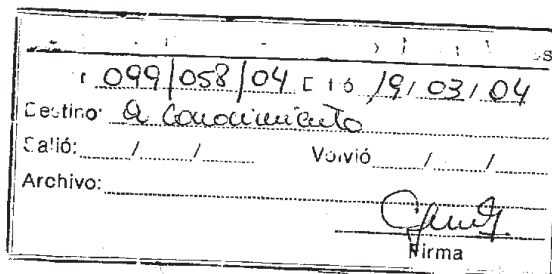 099/058/04 19/03/04
Destino: A conocimiento
Salió: / / Volvió / /
Archivo:
Firma